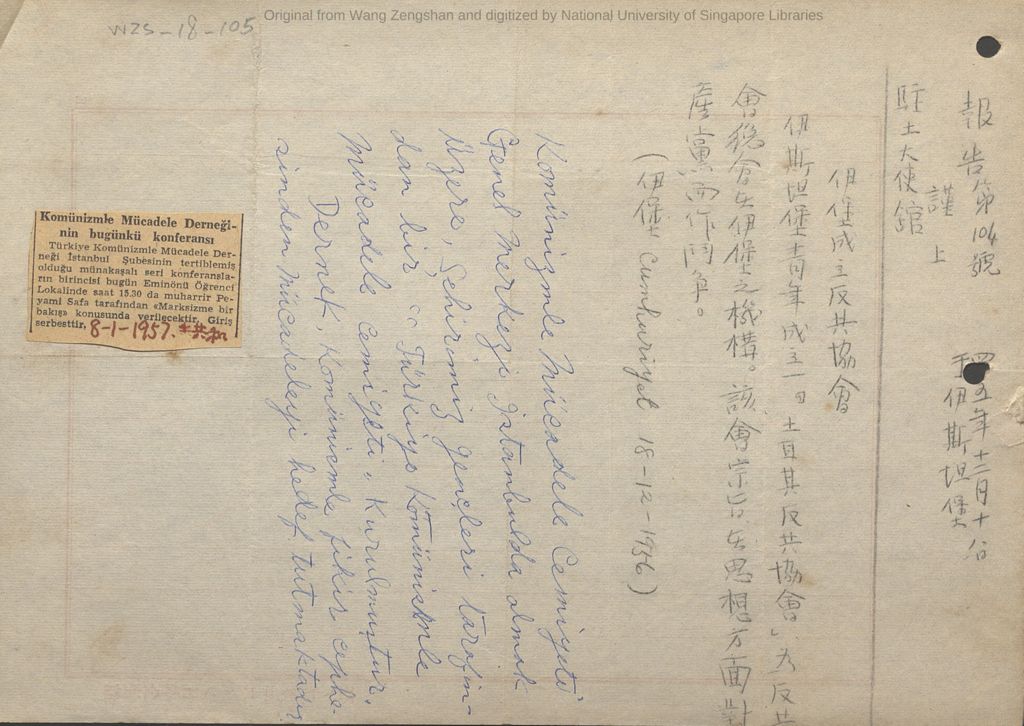 Original from Wang Zengshan and digitized by National University of Singapore Libraries
WZS-18-105
報告第104號
四五年十二月十八日
于伊斯坦堡
謹上
駐土大使館
伊堡成立反共協會
伊斯坦堡青年成立一曰土耳其反共協會」為反共
會總會在伊堡之機構。該會宗旨在思想方面對
產黨而作鬥爭。
(伊堡 Cumhuriyet 18-12-1956)
Komünizmle Mücadele Cemiyeti
Genel Merkezi İstanbulda olmak
üzere, Şehrimiz gençleri tarafın-
dan bir "Türkiye Komünizmle
Mücadele Cemiyeti" Kurulmuştur.
Dernek, Komünizmle fikir cephe-
sinden mücadeleyi hedef tutmaktadır
Komünizmle Mücadele Derneği-
nin bugünkü konferansı
Türkiye Komünizmle Mücadele Der-
neği İstanbul Şubesinin tertiblemiş
olduğu münakaşalı seri konferansla-
rın birincisi bugün Eminönü Öğrenci
Lokalinde saat 15.30 da muharrir Pe-
yami Safa tarafından «Marksizme bir
bakış» konusunda verilecektir. Giriş
serbesttir.
8-1-1957.